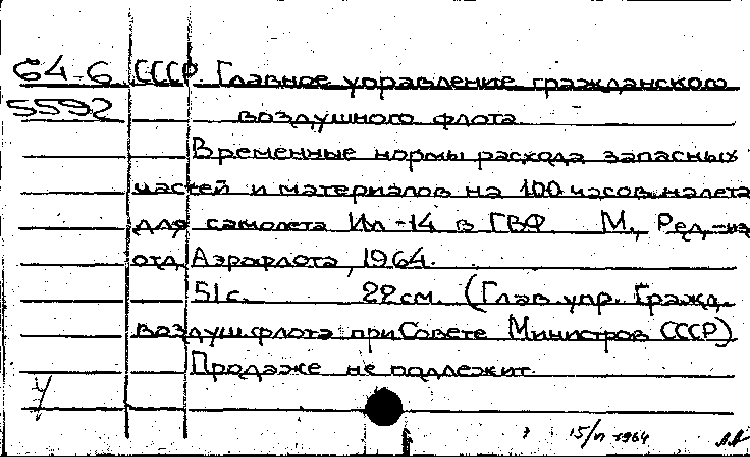 64-6 СССР. Главное управление гражданского
5592 воздушного флота.
Временные нормы расхода запасных
частей и материалов на 100 часов налета
для самолета Ил-14 в ГВФ М., Ред.-из
отд Аэрофлота, 1964.
51с. 22см. (Глав. упр. Гражд.
воздуш. флота при Совете Министров СССР)
Продаже не подлежит.
15/VI-1964